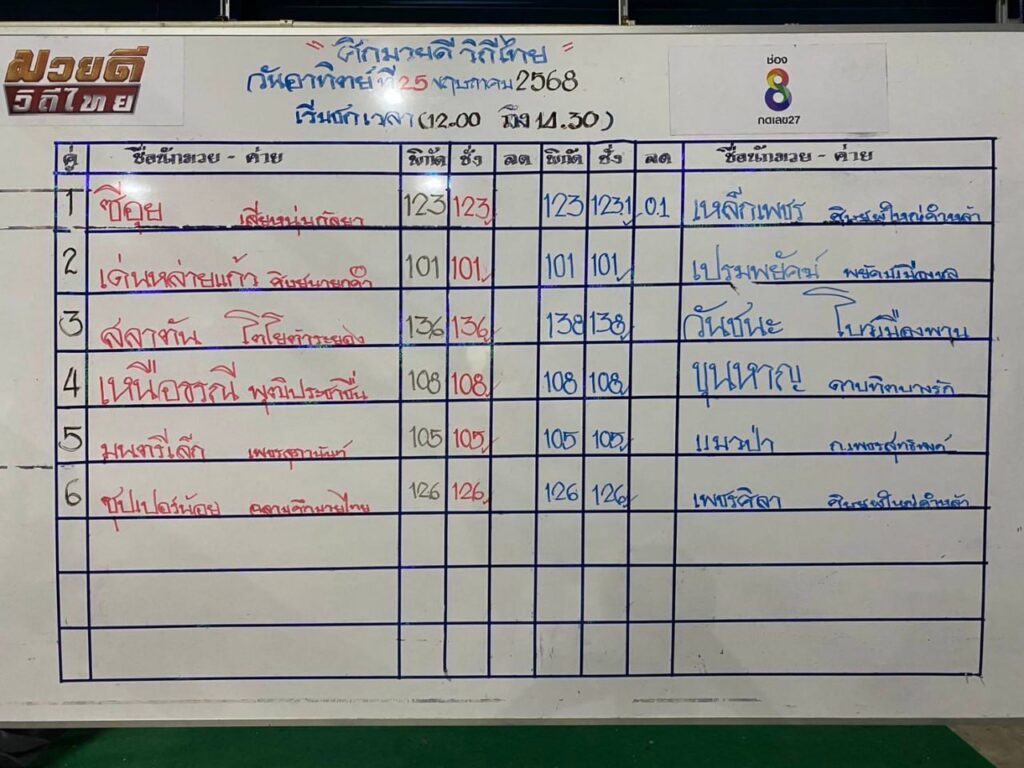 มวยดี
วิถีไทย
" ศึกมวยดี วิถีไทย "
วันอาทิตย์ที่ 25 พฤษภาคม 2568
เริ่มชกเวลา (12.00 ถึง 14.30)
ช่อง
8
กดเลข27
คู่ ชื่อนักมวย - ค่าย พิกัด ชั่ง ลด พิกัด ชั่ง ลด ชื่อนักมวย - ค่าย
1 ซีอุย เสี่ยหนุ่มกัลยา 123 123 123 1231 0.1 เหล็กเพชร
2 เด่นหล่ายแก้ว ศิษย์นายกคำ 101 101 101 101 เปรมพยัคฆ์ พยัคฆ์เมืองชล
3 สลาตัน 136 136 138 138 วันชนะ
4 เหนือธรณี พุฒิประชาชื่น 108 108 108 108 ขุนหาญ ดาบทิตบางรัก
5 มนตรีเล็ก เพชรสุภานันท์ 105 105 105 105 แมวป่า ก.เพชรสุทธิพงศ์
6 ซุปเปอร์น้อย 126 126 126 126 เพชรศิลา